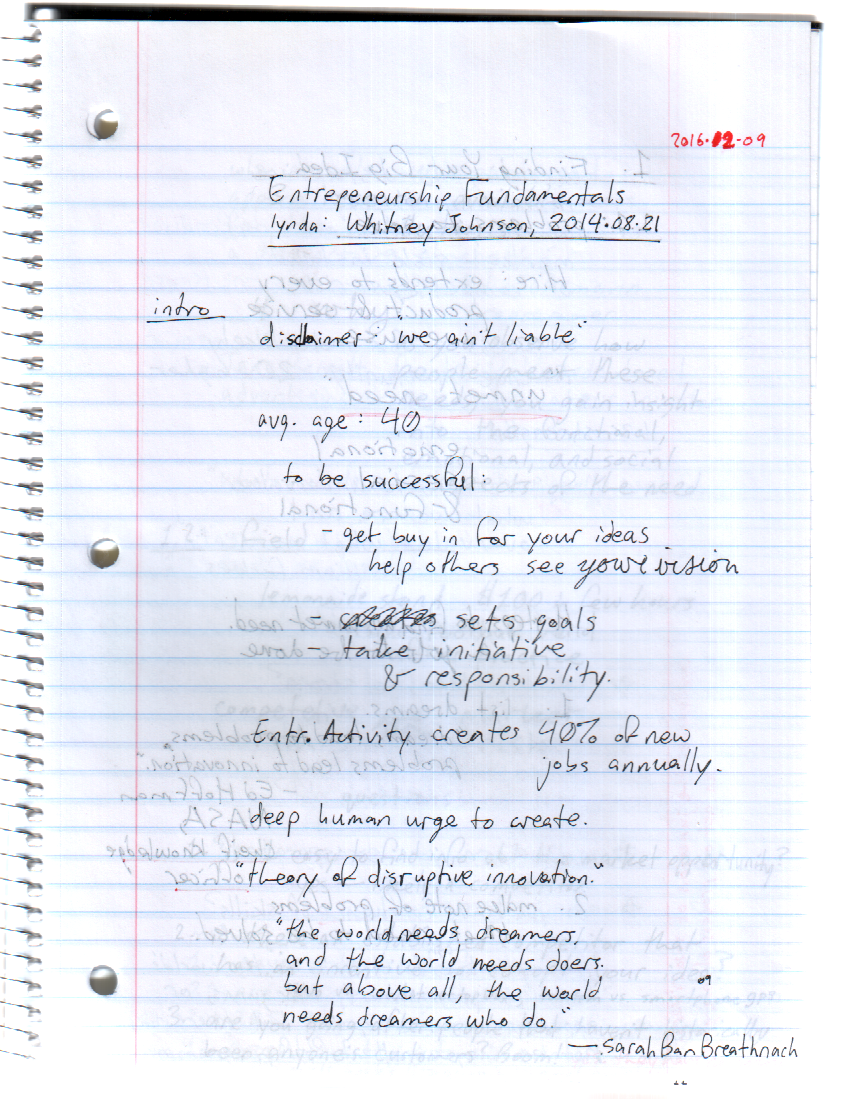 2016.12-09
Entrepeneurship Fundamentals
lynda: Whitney Johnson, 2014.08.21
intro
disclaimer: "we ain't liable"
avg. age: 40
to be successful:
- get buy in for your ideas
help others see your vision
- sets goals
- take initiative
& responsibility.
Entr. Activity creates 40% of new
jobs annually.
deep human urge to create.
"theory of disruptive innovation."
"the world needs dreamers,
and the world needs doers.
but above all, the world
needs dreamers who do."
— Sarah Ban Breathnach